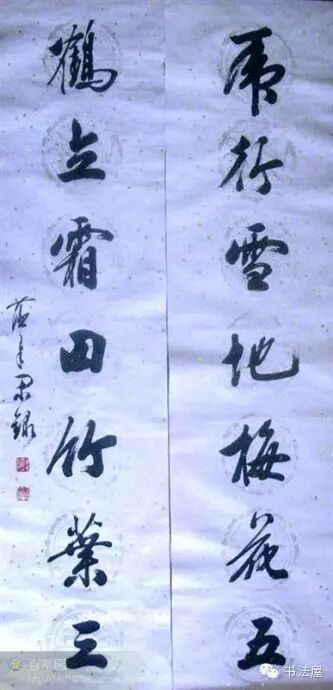 虎行雪地梅花五
鹤立霜田竹叶三
书法屋